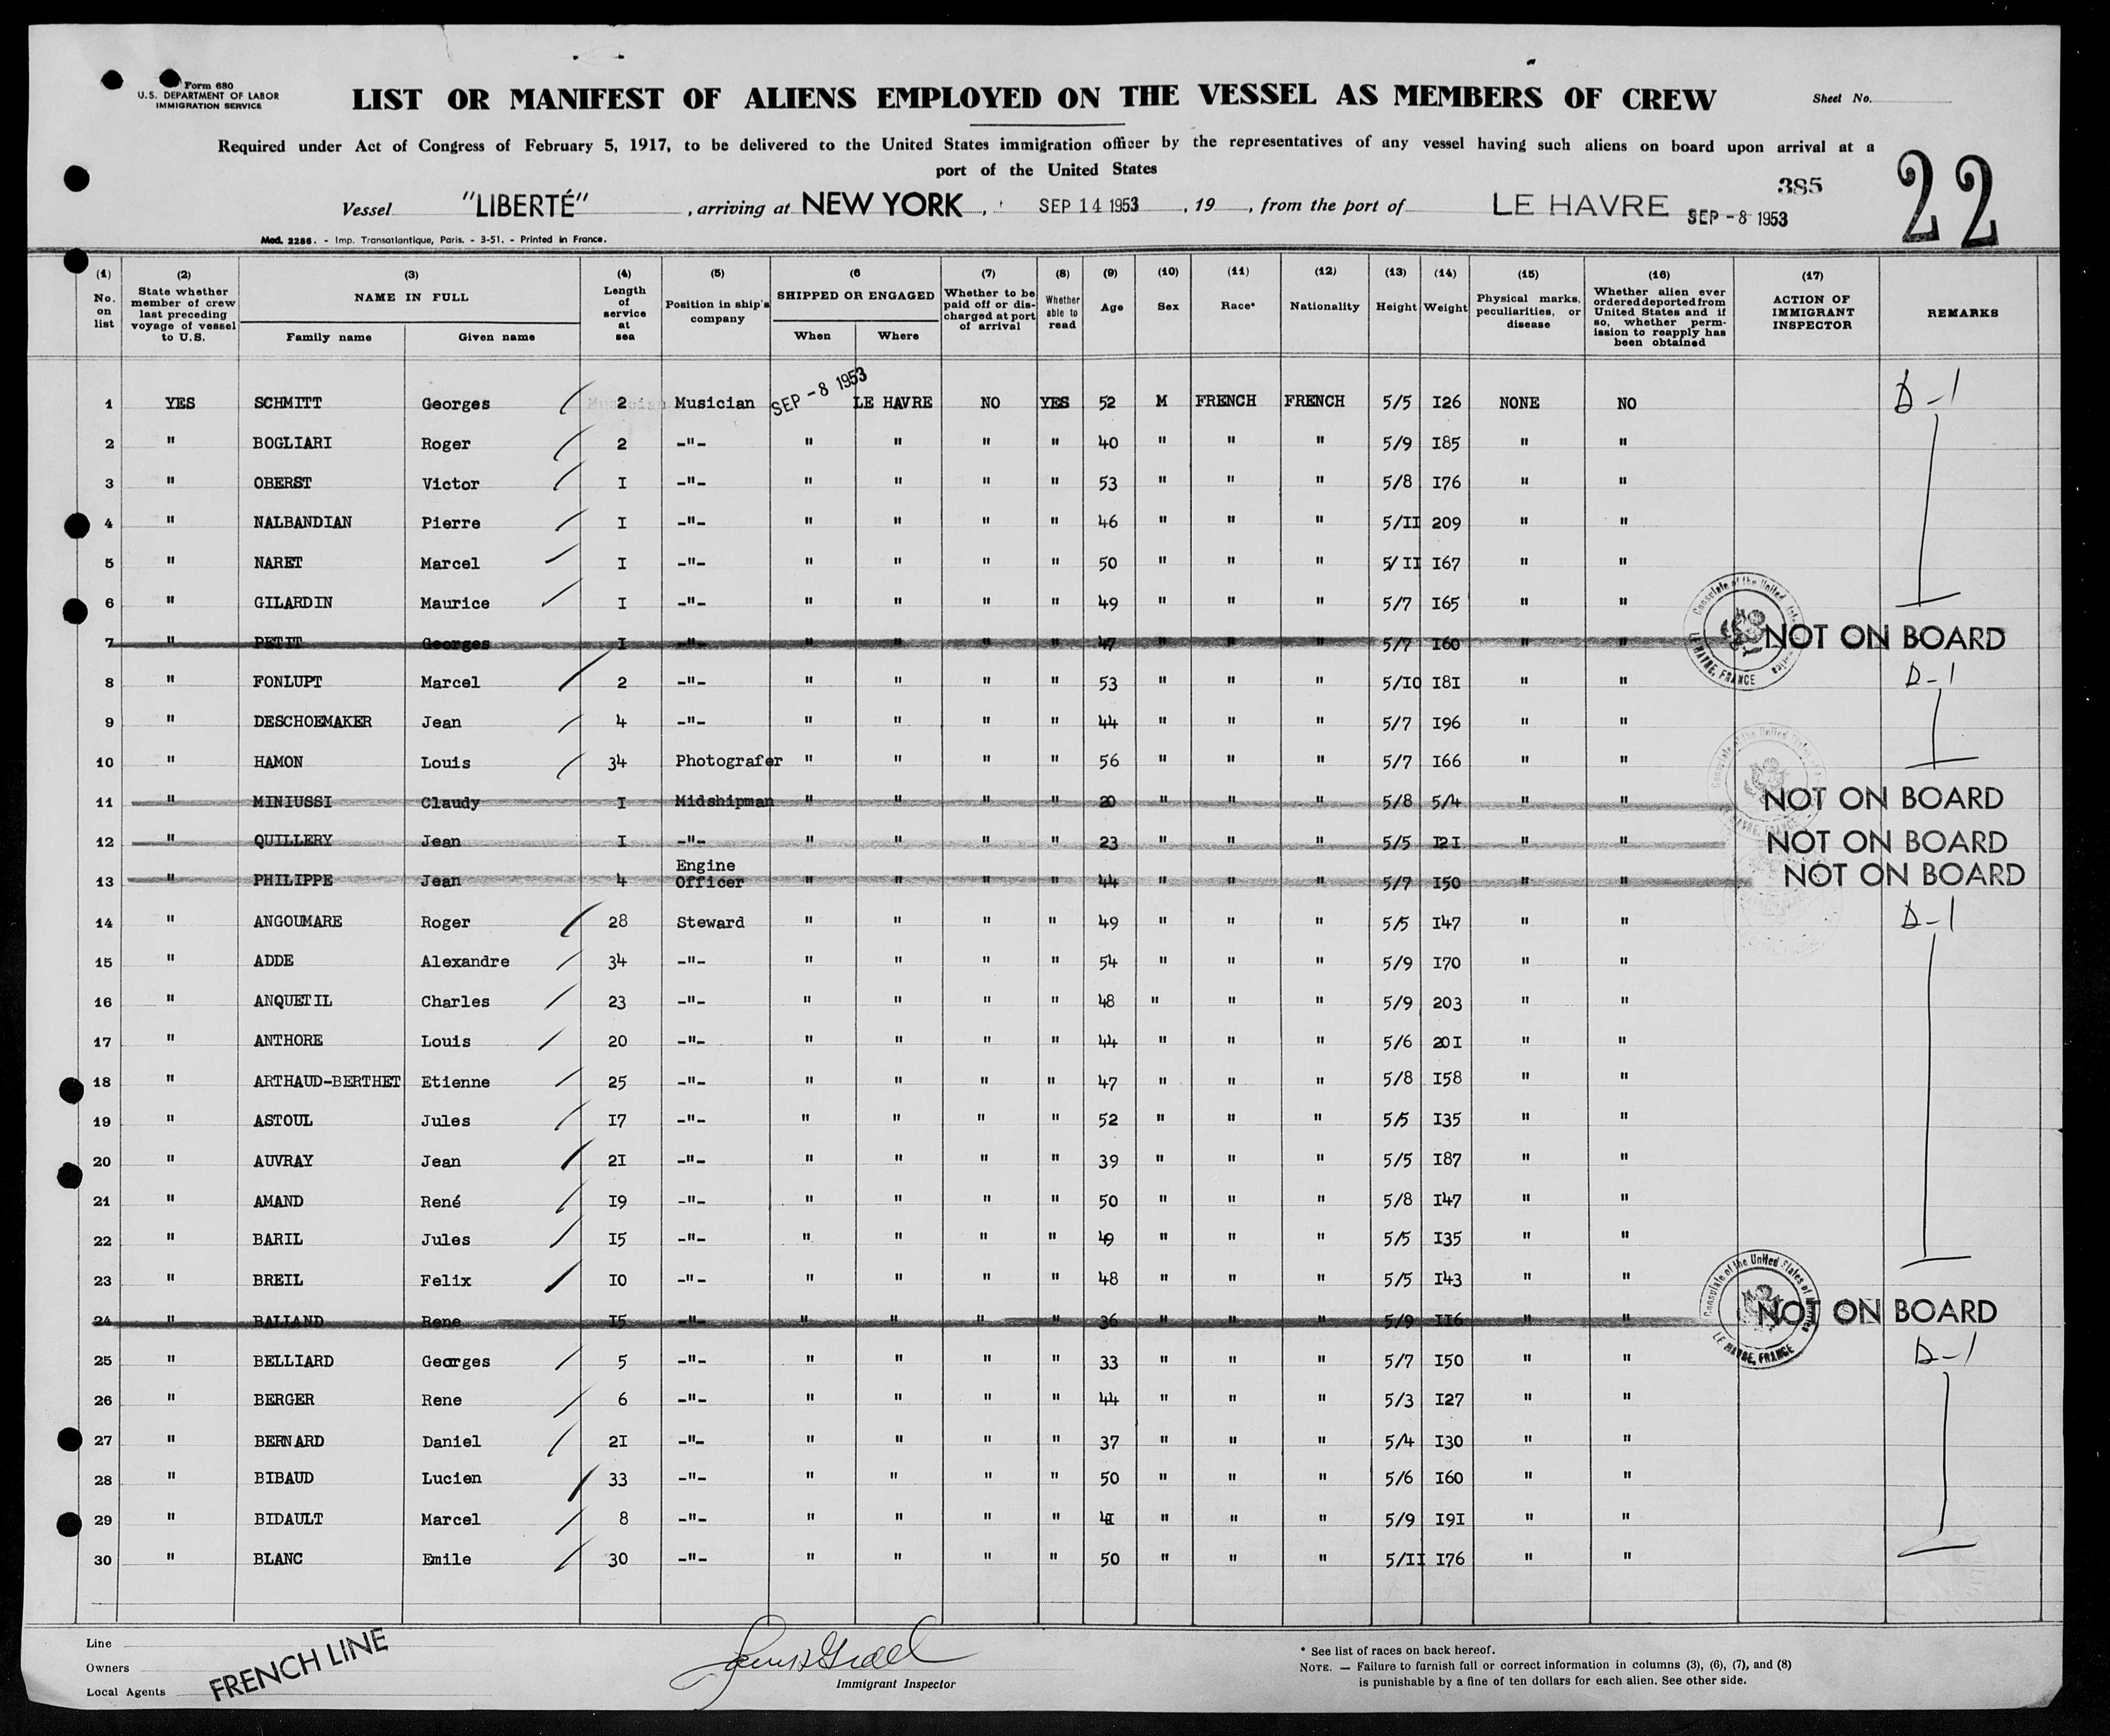 Form 680
U.S. DEPARTMENT OF LABOR
IMMIGRATION SERVICE
LIST OR MANIFEST OF ALIENS EMPLOYED ON THE VESSEL AS MEMBERS OF CREW
Sheet No.
Required under Act of Congress of February 5, 1917, to be delivered to the United States immigration officer by the representatives of any vessel having such aliens on board upon arrival at a
port of the United States
385
22
Vessel "LIBERTÉ" , arriving at NEW YORK , SEP 14 1953 , 19 , from the port of LE HAVRE SEP -8 1953
Mod. 2286. - Imp. Transatlantique, Paris. - 3-51. - Printed in France.
(1) No. on list (2) State whether member of crew last preceding voyage of vessel to U.S. (3) NAME IN FULL Family name Given name (4) Length of service at sea (5) Position in ship's company (6 SHIPPED OR ENGAGED When Where (7) Whether to be paid off or discharged at port of arrival (8) Whether able to read (9) Age (10) Sex (11) Race* (12) Nationality (13) Height (14) Weight (15) Physical marks, peculiarities, or disease (16) Whether alien ever ordered deported from United States and if so, whether permission to reapply has been obtained (17) ACTION OF IMMIGRANT INSPECTOR REMARKS
1 YES SCHMITT Georges 2 Musician SEP -8 1953 LE HAVRE NO YES 52 M FRENCH FRENCH 5/5 I26 NONE NO D-1
2 " BOGLIARI Roger 2 -"- " " " " 40 " " " 5/9 I85 " "
3 " OBERST Victor I -"- " " " " 53 " " " 5/8 I76 " "
4 " NALBANDIAN Pierre I -"- " " " " 46 " " " 5/II 209 " "
5 " NARET Marcel I -"- " " " " 50 " " " 5/II I67 " "
6 " GILARDIN Maurice I -"- " " " " 49 " " " 5/7 I65 " "
7 " PETIT Georges I -"- " " " " 47 " " " 5/7 I60 " " NOT ON BOARD
8 " FONLUPT Marcel 2 -"- " " " " 53 " " " 5/IO I8I " " D-1
9 " DESCHOEMAKER Jean 4 -"- " " " " 44 " " " 5/7 I96 " "
10 " HAMON Louis 34 Photografer " " " " 56 " " " 5/7 I66 " "
11 " MINIUSSI Claudy I Midshipman " " " " 20 " " " 5/8 5/4 " " NOT ON BOARD
12 " QUILLERY Jean I -"- " " " " 23 " " " 5/5 I2I " " NOT ON BOARD
13 " PHILIPPE Jean 4 Engine Officer " " " " 44 " " " 5/7 I50 " " NOT ON BOARD
14 " ANGOUMARE Roger 28 Steward " " " " 49 " " " 5/5 I47 " " D-1
15 " ADDE Alexandre 34 -"- " " " " 54 " " " 5/9 I70 " "
16 " ANQUETIL Charles 23 -"- " " " " 48 " " " 5/9 203 " "
17 " ANTHORE Louis 20 -"- " " " " 44 " " " 5/6 20I " "
18 " ARTHAUD-BERTHET Etienne 25 -"- " " " " 47 " " " 5/8 I58 " "
19 " ASTOUL Jules I7 -"- " " " " 52 " " " 5/5 I35 " "
20 " AUVRAY Jean 2I -"- " " " " 39 " " " 5/5 I87 " "
21 " AMAND René I9 -"- " " " " 50 " " " 5/8 I47 " "
22 " BARIL Jules I5 -"- " " " " 49 " " " 5/5 I35 " "
23 " BREIL Felix IO -"- " " " " 48 " " " 5/5 I43 " "
24 " BALLAND Rene I5 -"- " " " " 36 " " " 5/9 II6 " " NOT ON BOARD
25 " BELLIARD Georges 5 -"- " " " " 33 " " " 5/7 I50 " " D-1
26 " BERGER Rene 6 -"- " " " " 44 " " " 5/3 I27 " "
27 " BERNARD Daniel 2I -"- " " " " 37 " " " 5/4 I30 " "
28 " BIBAUD Lucien 33 -"- " " " " 50 " " " 5/6 I60 " "
29 " BIDAULT Marcel 8 -"- " " " " 4I " " " 5/9 I9I " "
30 " BLANC Emile 30 -"- " " " " 50 " " " 5/II I76 " "
Consulate of the United States of America
LE HAVRE, FRANCE
Line
Owners
Local Agents
FRENCH LINE
Immigrant Inspector
* See list of races on back hereof.
NOTE. — Failure to furnish full or correct information in columns (3), (6), (7), and (8)
is punishable by a fine of ten dollars for each alien. See other side.